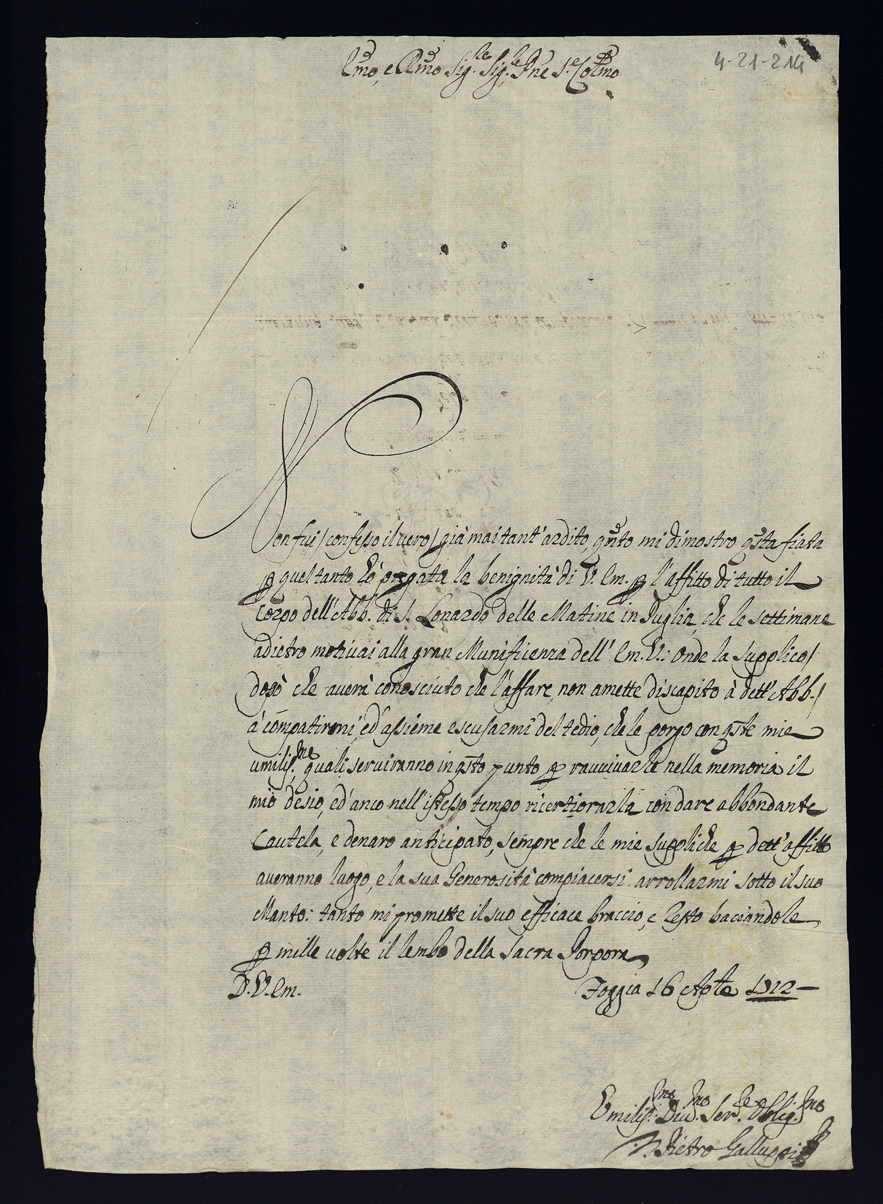 4-21-214
Em̃o, e Rm̃o Sig.re Sig.re Pñe S.e Colm̃o
Non fui / confesso il vero / già mai tant' ardito, qñto mi dimostro qsta fiata
p quel tanto hò pregata la benignità di V. Em. p l'affitto di tutto il
Corpo dell'Abb. di S. Lonardo delle Matine in Puglia, che le settimane
adietro motivai alla gran Munificenza dell' Em. V.: Onde la supplico /
dopò che averà conosciuto che l'affare, non amette discapito à dett'Abb. /
à compatirmi, ed' assieme escusarmi del tedio, che le porgo con qste mie
umiliss.me quali serviranno in qsto punto p ravvivarle nella memoria il
mio desio, ed'anco nell'istesso tempo ricertiorarla con dare abbondante
Cautela, e denaro anticipato, sempre che le mie suppliche p dett'affitto
averanno luogo, e la sua Generosità compiacersi arrollarmi sotto il suo
Manto: tanto mi promette il suo efficace braccio, e resto baciandole
p mille volte il lembo della Sacra Porpora
D. V. Em. Foggia 16 Aple 1712
Umiliss.mo Div.mo Ser.re Oblig.mo
Pietro Galluppi